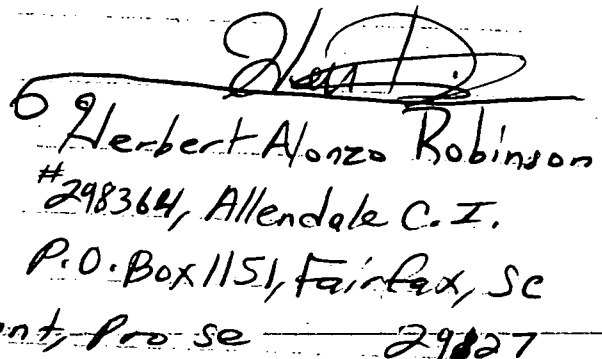 Herbert Alonzo Robinson
#298364, Allendale C.I.
P.O. Box 1151, Fairfax, SC
Pro se 29827